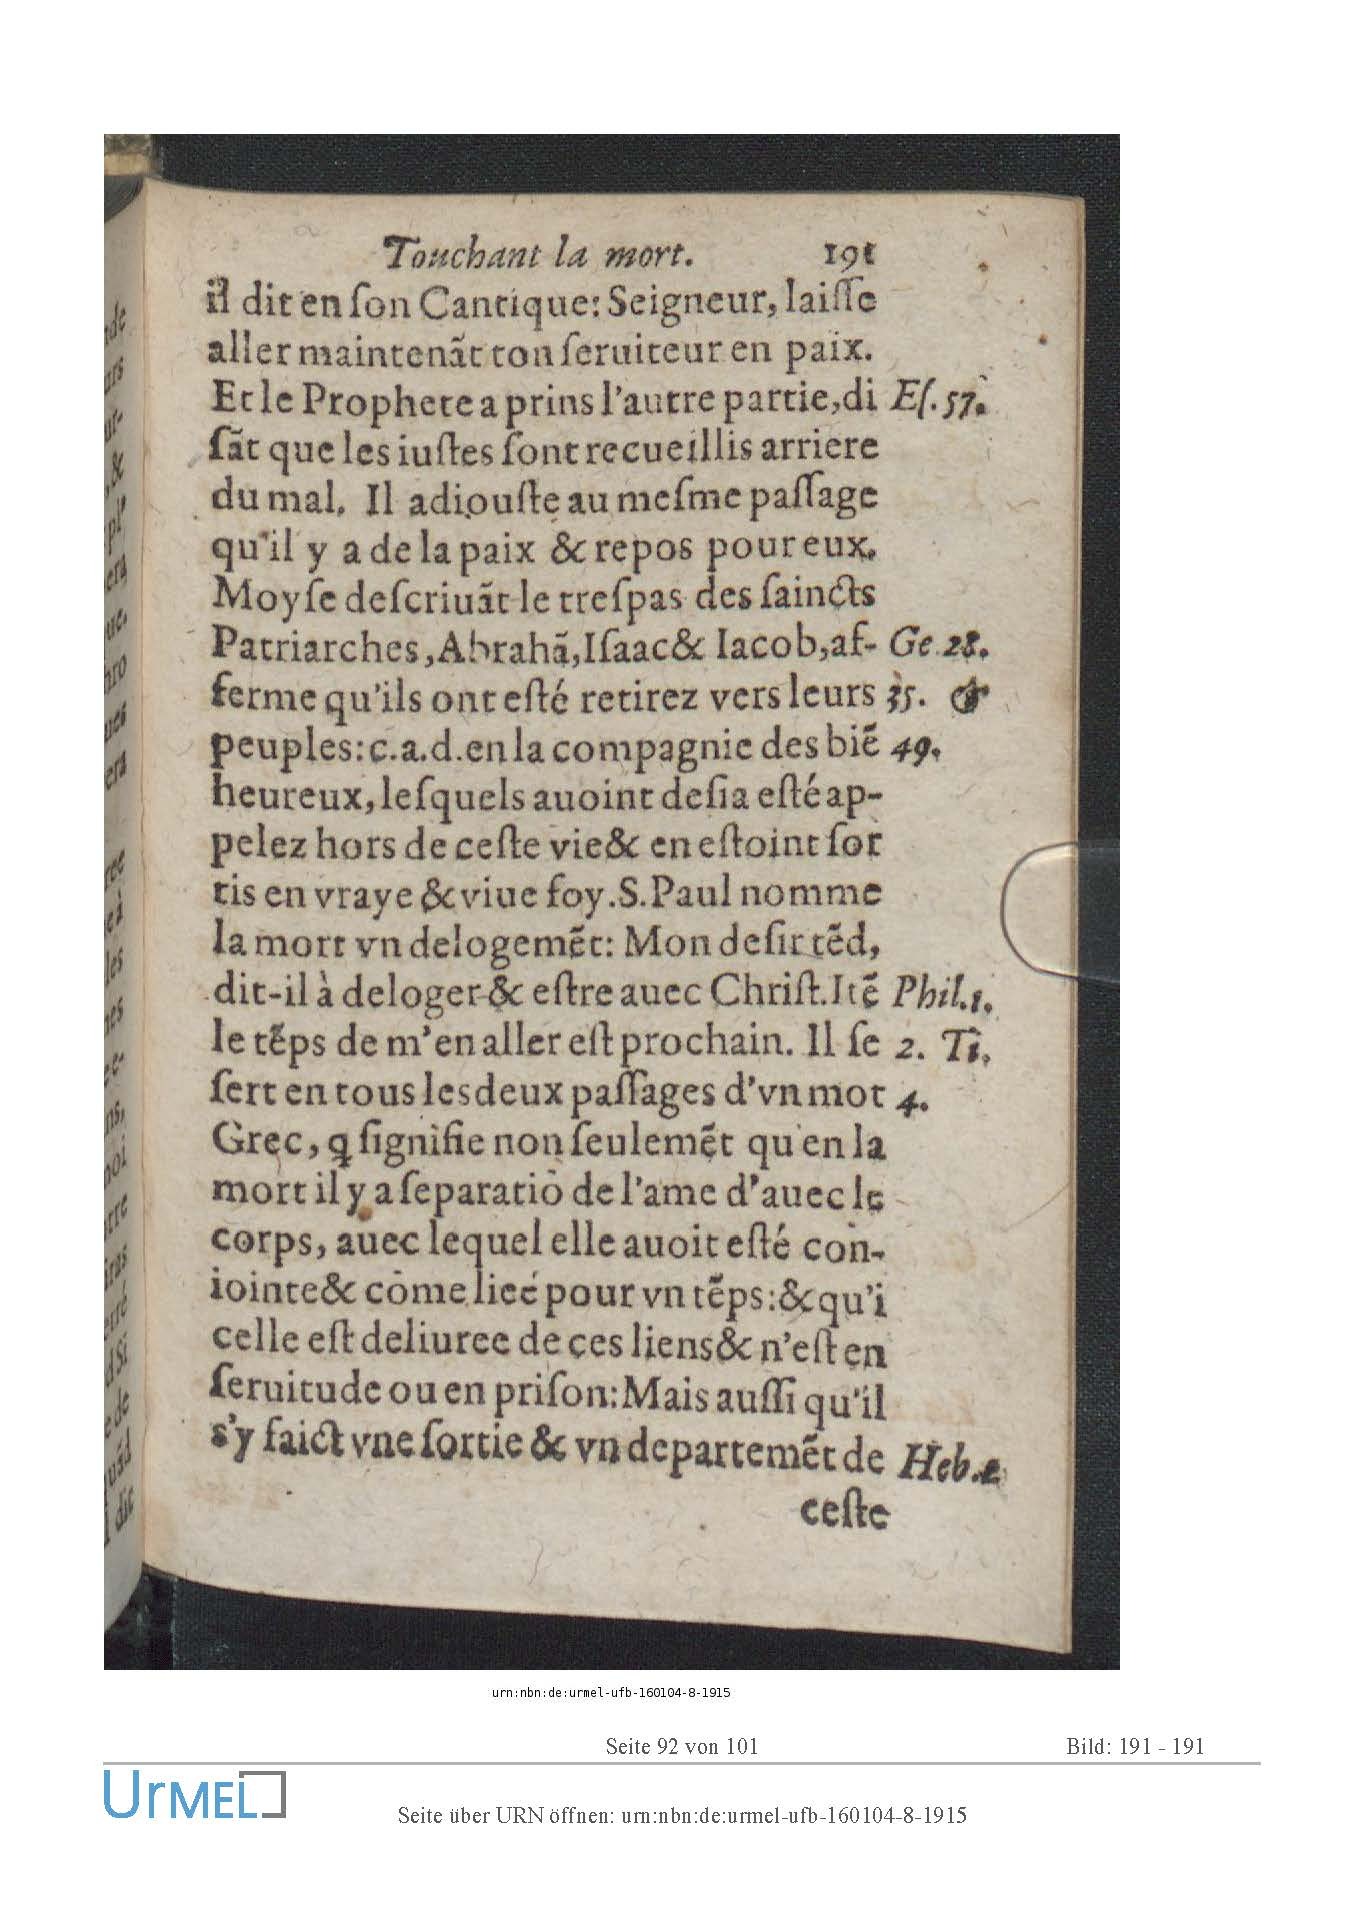 Touchant la mort. 191
il dit en ſon Cantique: Seigneur, laiſſe
aller maintenāt ton ſeruiteur en paix.
Et le Prophete a prins l'autre partie, di Eſ. 57.
ſāt que les iuſtes ſont recueillis arriere
du mal. Il adiouſte au meſme paſſage
qu'il y a de la paix & repos pour eux.
Moyſe deſcriuāt le treſpas des ſaincts
Patriarches, Abrahā, Iſaac & Iacob, af- Ge. 28.
ferme qu'ils ont eſté retirez vers leurs 35. &
peuples: c.a.d. en la compagnie des biē 49.
heureux, leſquels auoint deſia eſté ap-
pelez hors de ceſte vie & en eſtoint ſor
tis en vraye & viue foy. S. Paul nomme
la mort vn delogemēt: Mon deſir tēd,
dit-il à deloger & eſtre auec Chriſt. Itē Phil. 1.
le tēps de m'en aller eſt prochain. Il ſe 2. Ti.
ſert en tous les deux paſſages d'vn mot 4.
Grec, q̃ ſignifie non ſeulemēt qu'en la
mort il y a ſeparatiō de l'ame d'auec le
corps, auec lequel elle auoit eſté con-
iointe & cōme liee pour vn tēps: & qu'i
celle eſt deliuree de ces liens & n'eſt en
ſeruitude ou en priſon: Mais auſſi qu'il
s'y faict vne ſortie & vn departemēt de Heb.
ceſte
urn:nbn:de:urmel-ufb-160104-8-1915
Seite 92 von 101 Bild: 191 - 191
UrMEL
Seite über URN öffnen: urn:nbn:de:urmel-ufb-160104-8-1915